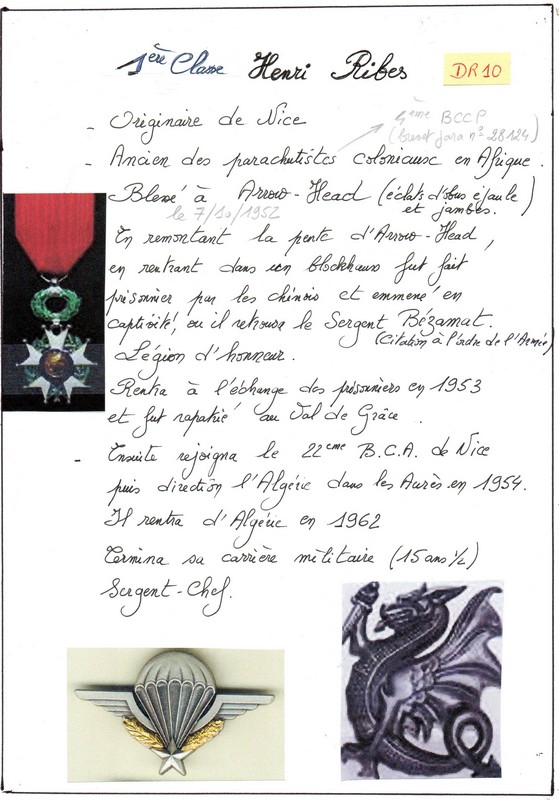 1ère Classe Henri Ribes DR10
- Originaire de Nice
4ème BCCP
(brevet para n° 28124)
- Ancien des parachutistes coloniaux en Afrique.
Blessé à Arrow-Head (éclats d'obus épaule
et jambes.)
le 7/10/1952
En remontant la pente d'Arrow-Head,
en rentrant dans un blockhaus fut fait
prisonnier par les chinois et emmené en
captivité, ou il retrouva le Sergent Bézamat.
(Citation à l'ordre de l'Armée)
Légion d'honneur.
Rentra à l'échange des prisonniers en 1953
et fut rapatrié au Val de Grâce.
- Ensuite rejoigna le 22ème B.C.A. de Nice
puis direction l'Algérie dans les Aurès en 1954.
Il rentra d'Algérie en 1962
Termina sa carrière militaire (15 ans ½)
Sergent-Chef.